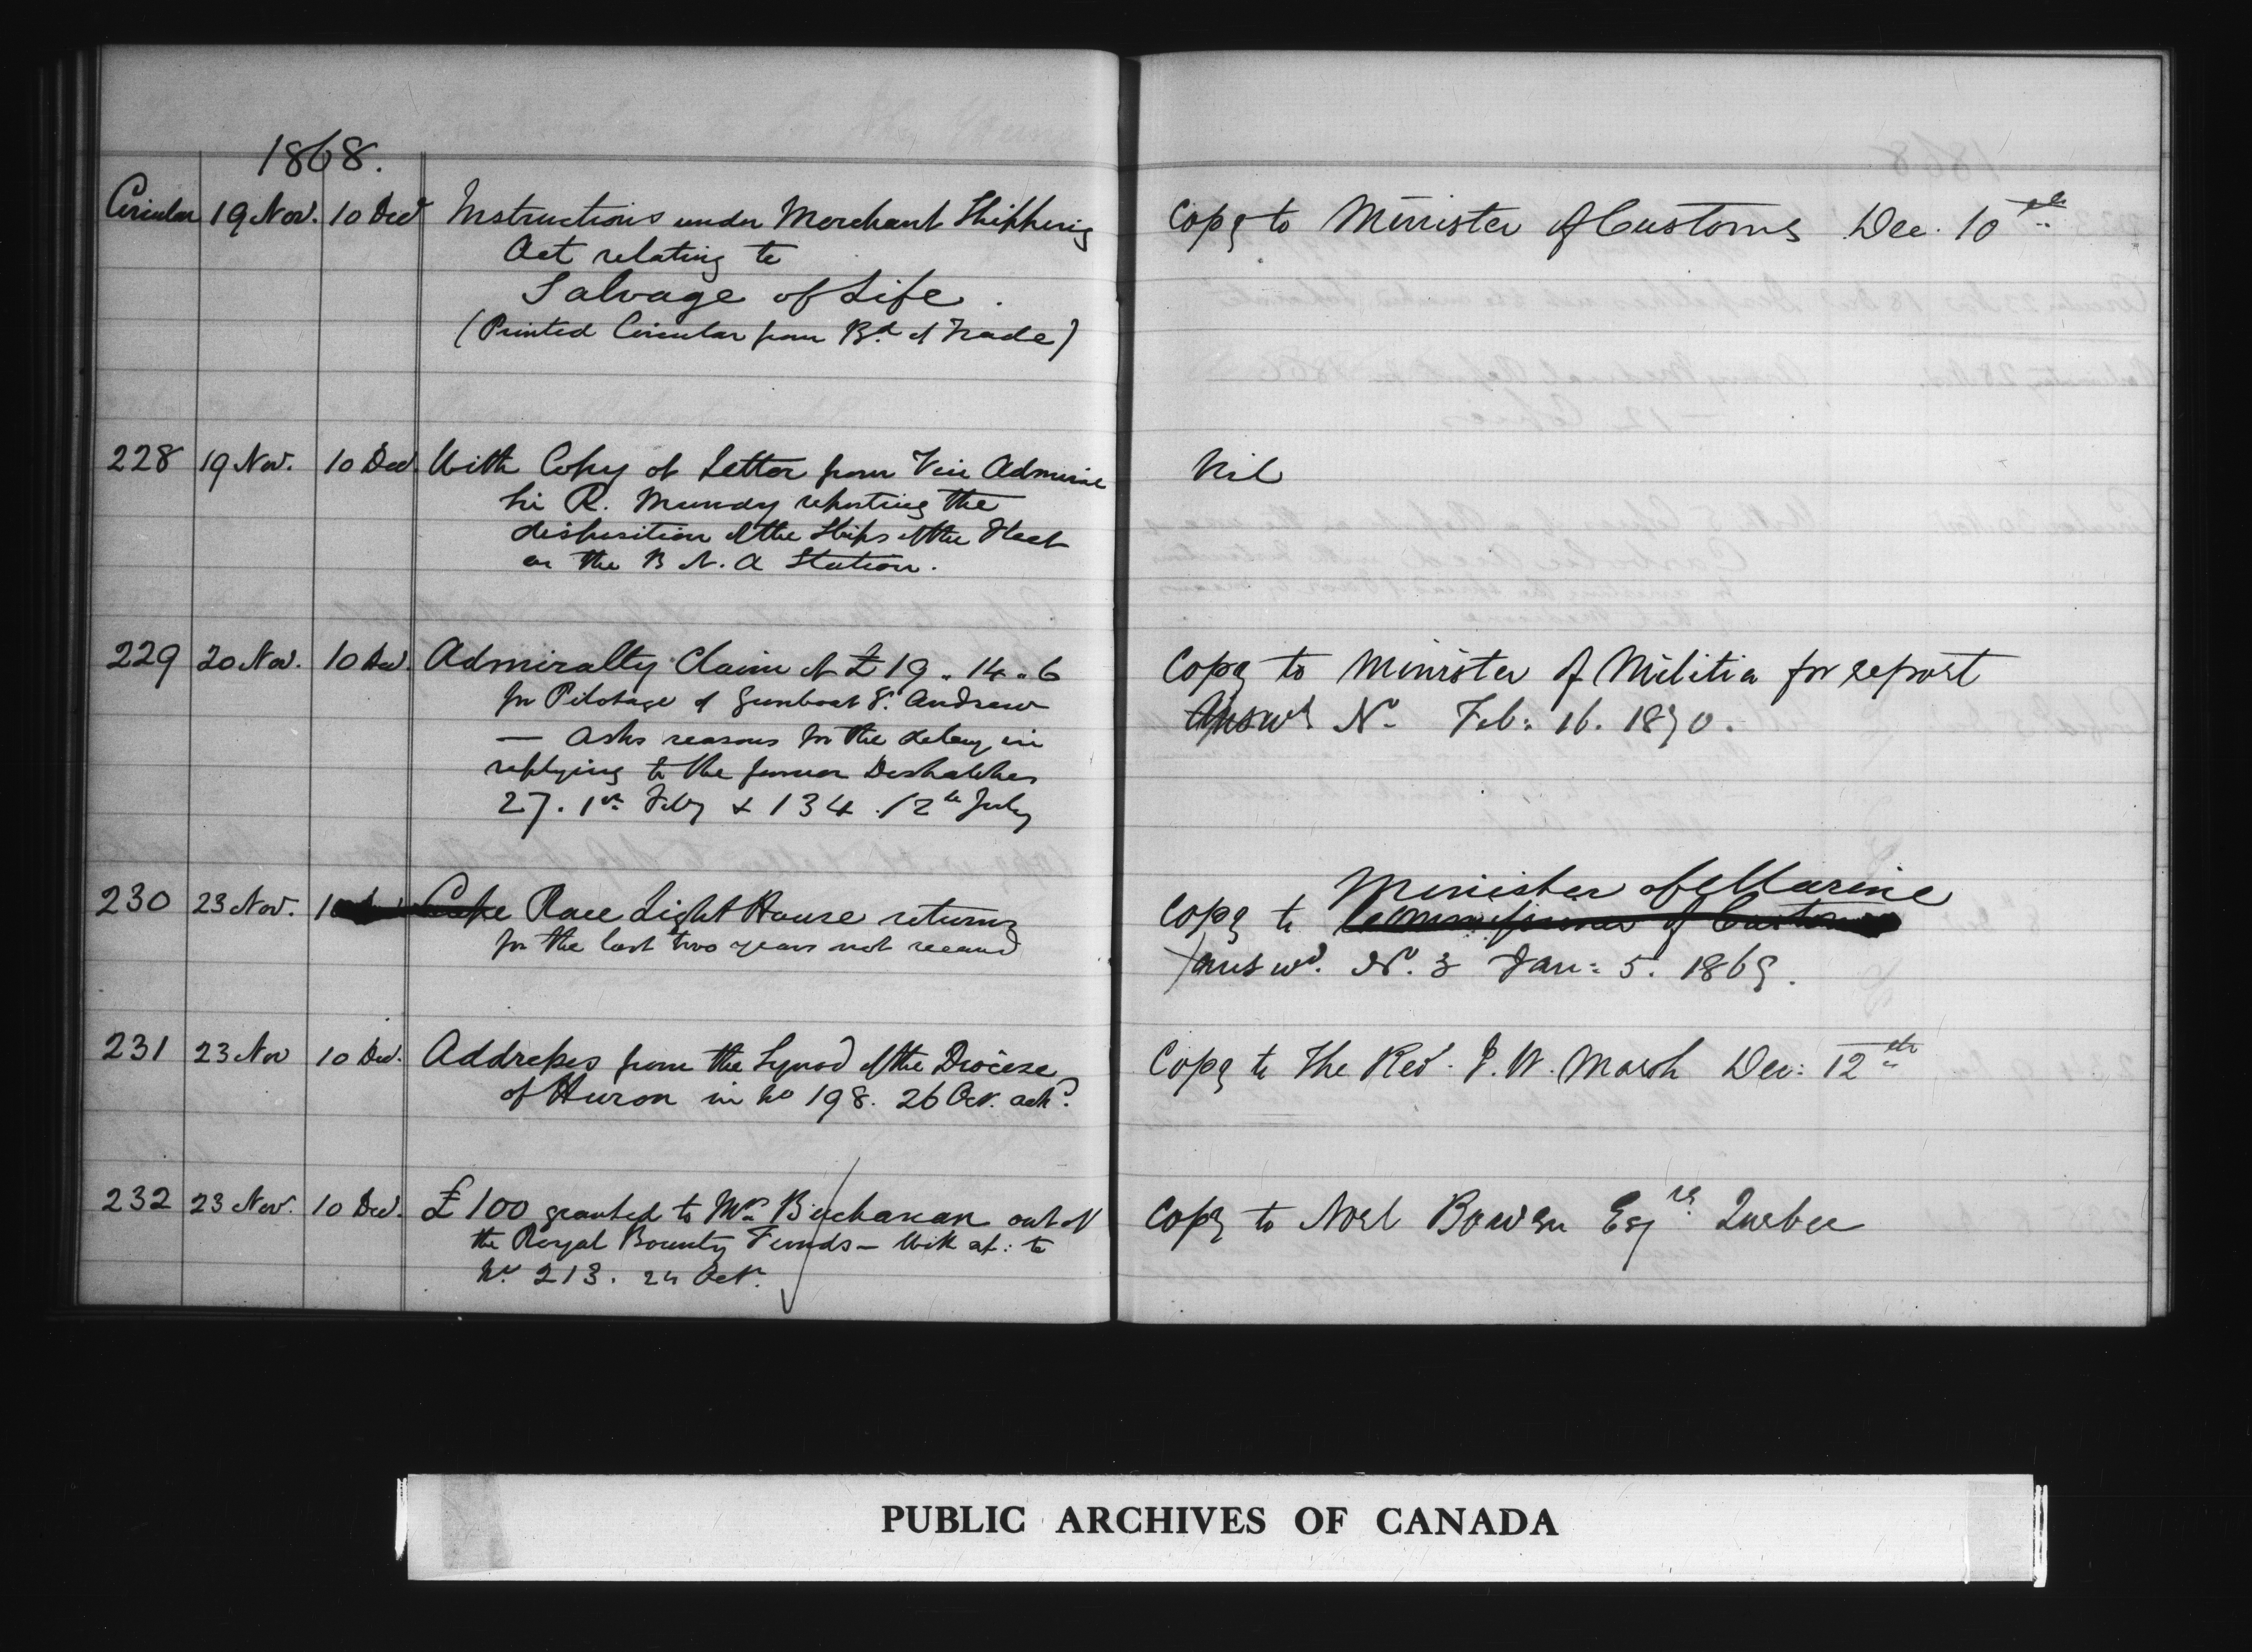 1868.
Circular 19 Nov. 10 Dec Instructions under Merchant Shipping
Act relating to
Salvage of Life.
(Printed Circular from Bd. of Trade)
Copy to Minister of Customs Dec. 10th
228 19 Nov. 10 Dec With Copy of Letter from Vice Admiral
Sir R. Mundy reporting the
disposition of the Ships of the Fleet
on the B N. A Station.
Nil
229 20 Nov. 10 Dec. Admiralty Claim of £19 " 14 " 6
for Pilotage of Gunboat St. Andrew
— Asks reasons for the delay in
replying to the former Despatches
27. 1st Feby & 134. 12th July
Copy to Minister of Militia for report
Answd No Feb: 16. 1870.
230 23 Nov. Cape Race Light House returns
for the last two years not received
Minister of Marine
Copy to Commissioner of Customs
answd. No. 3 Jan: 5. 1869.
231 23 Nov 10 Dec. Addresses from the Synod of the Diocese
of Huron in No 198. 26 Oct. ackd.
Copy to The Revd. J. W. Marsh Dec: 12th
232 23 Nov. 10 Dec. £100 granted to Mrs Buchanan out of
the Royal Bounty Funds — With ref: to
No. 213. 24 Octr.
Copy to Noel Bowen Esqre Quebec
PUBLIC ARCHIVES OF CANADA